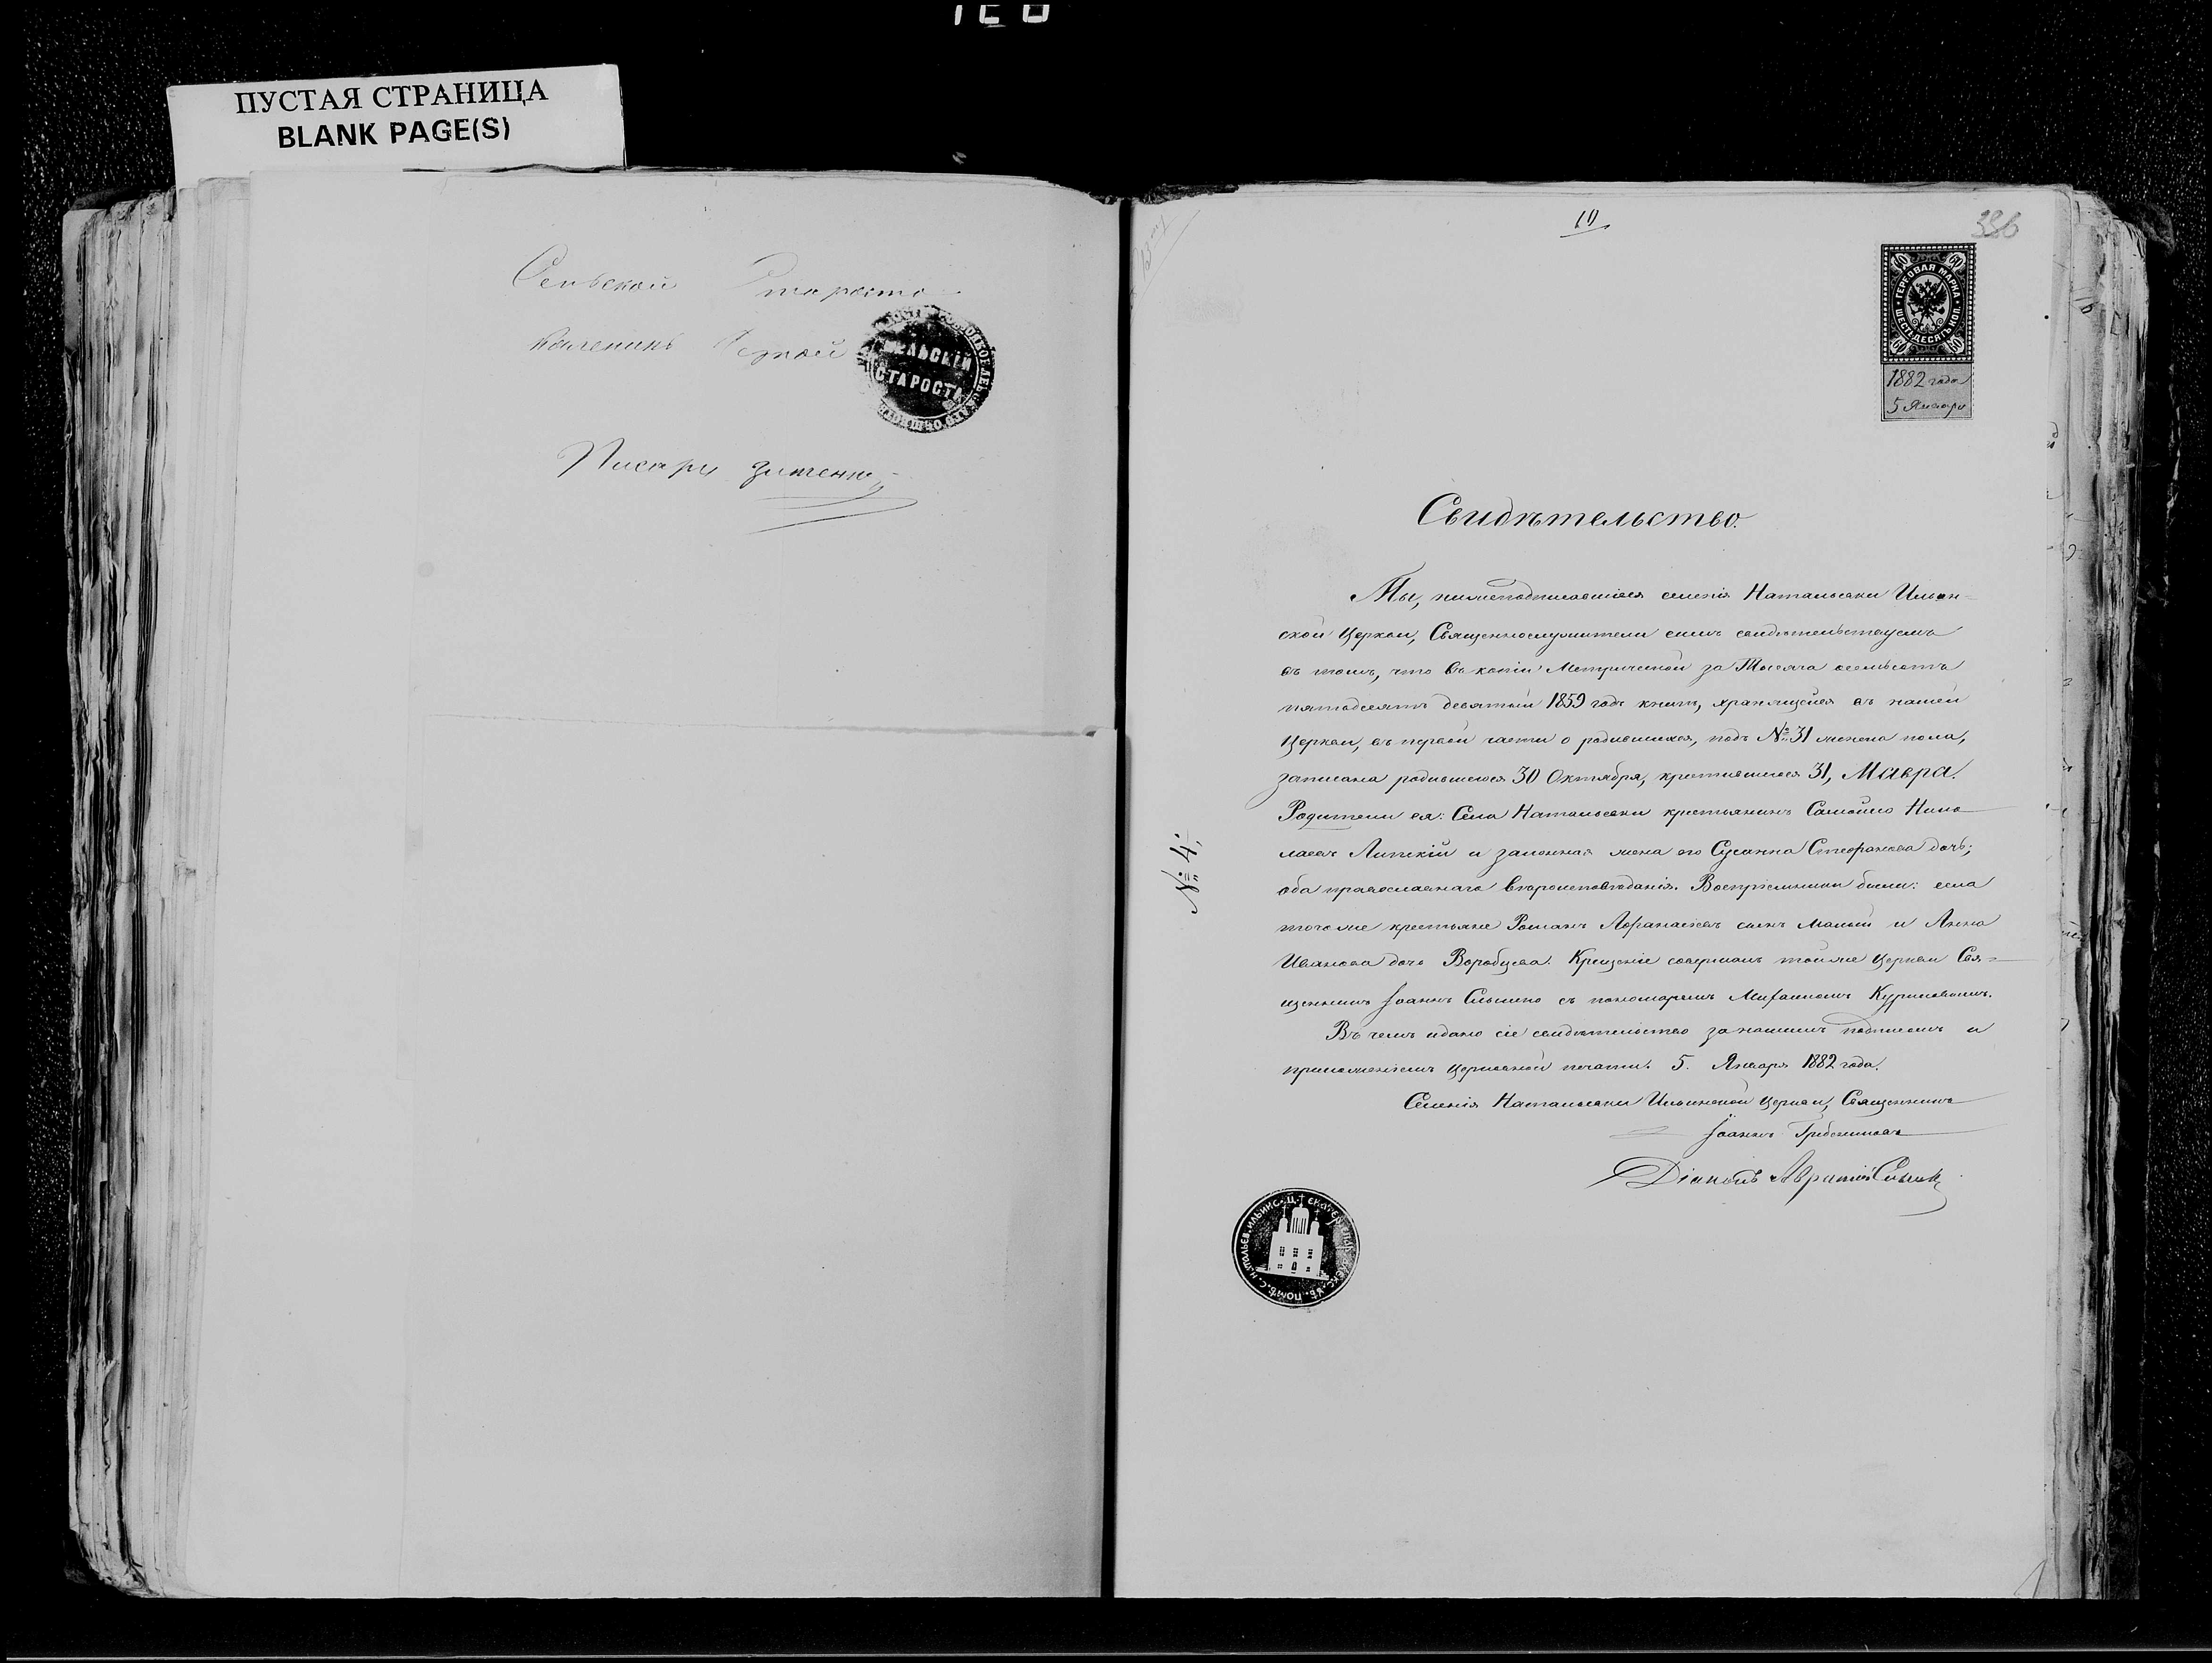 ПУСТАЯ СТРАНИЦА
BLANK PAGE(S)
Сельской Староста
Писарь
СЕЛЬСКІЙ
СТАРОСТА
10
386
ГЕРБОВАЯ МАРКА
ШЕСТЬДЕСЯТЪ КОП.
60 60
60 60
1882 года
5 Января
Свидѣтельство.
Мы, нижеподписавшіеся селенія Натальевки Ильин-
ской Церкви, Священнослужители симъ свидѣтельствуемъ
въ томъ, что въ копіи Метрической за Тысяча восемьсотъ
пятьдесятъ девятый 1859 годъ книги, хранящейся въ нашей
Церкви, въ первой части о родившихся, подъ № 31 женска пола,
записана родившеюся 30 Октября, крестившеюся 31, Мавра.
Родители ея: Села Натальевки крестьянинъ Самойло Нико-
лаевъ Липскій и законная жена его Сусанна Стефанова дочь;
оба православнаго вѣроисповѣданія. Воспріемники были: села
того же крестьяне Романъ Афанасіевъ сынъ Малый и Анна
Иванова дочь Воробцева. Крещеніе совершалъ той же Церкви Свя-
щенникъ Іоаннъ съ пономаремъ Михаиломъ
Въ чемъ и дано сіе свидѣтельство за нашимъ подписомъ и
приложеніемъ Церковной печати. 5. Января 1882 года.
Селенія Натальевки Ильинской Церкви, Священникъ
Іоаннъ
Діаконъ
№ 4.